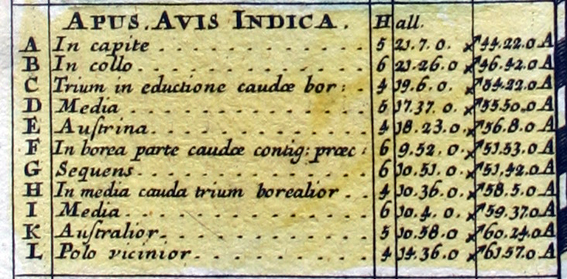 APUS. AVIS INDICA. Hall.
A In capite 5 21.7.0. ♐ 44.22.0 A
B In collo 6 21.26.0 ♐ 46.42.0 A
C Trium in eductione caudæ bor: 4 19.6.0. ♐ 54.22.0 A
D Media 5 17.37.0. ♐ 55.50.0 A
E Auſtrina 4 18.23.0. ♐ 56.8.0 A
F In borea parte caudæ contig: præc: 6 9.52.0. ♐ 51.53.0 A
G Sequens 6 10.51.0. ♐ 51.42.0 A
H In media cauda trium borealior 4 10.36.0. ♐ 58.5.0 A
I Media 6 10.4.0. ♐ 59.37.0 A
K Auſtralior 5 10.58.0 ♐ 60.24.0 A
L Polo vicinior 4 14.36.0 ♐ 61.57.0 A